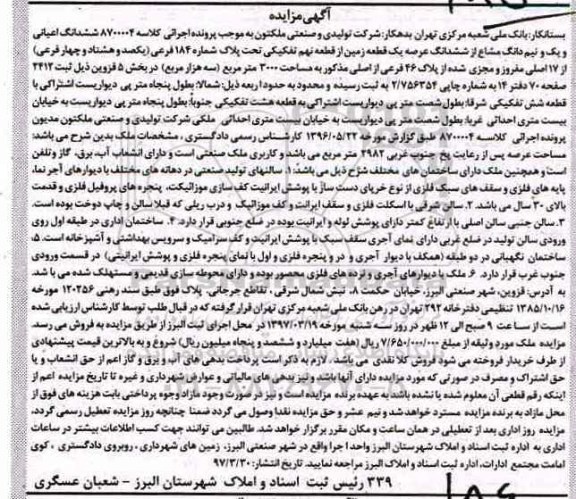 آگهی مزایده
بستانکار: بانک ملی شعبه مرکزی تهران بدهکار: شرکت تولیدی و صنعتی ملکتون به موجب پرونده اجرائی کلاسه ۸۷۰۰۰۰۴ ششدانگ اعیانی
و یک و نیم دانگ مشاع از ششدانگ عرصه یک قطعه زمین از قطعه نهم تفکیکی تحت پلاک شماره ۱۸۴ فرعی (یکصد و هشتاد و چهار فرعی)
از ۱۷ اصلی مفروز و مجزی شده از پلاک ۴۶ فرعی از اصلی مذکور به مساحت ۳۰۰۰ متر مربع (سه هزار مربع) در بخش ۵ قزوین ذیل ثبت ۲۴۱۲
صفحه ۷۰ دفتر ۱۴ به شماره چاپی ۲/۷۵۶۳۵۴ به ثبت رسیده و محدود به حدود اربعه ذیل: شمالا: بطول پنجاه متر پی دیواریست اشتراکی با
قطعه شش تفکیکی شرقا: بطول شصت متر پی دیواریست اشتراکی به قطعه هشت تفکیکی جنوباً: بطول پنجاه متر پی دیواریست به خیابان
بیست متری احداثی غربا: بطول شصت متر پی دیواریست به خیابان بیست متری احداثی ملکی شرکت تولیدی و صنعتی ملکتون مدیون
پرونده اجرائی کلاسه ۸۷۰۰۰۰۴ طبق گزارش مورخه ۱۳۹۶/۰۵/۲۲ کارشناس رسمی دادگستری، مشخصات ملک بدین شرح می باشد:
مساحت عرصه پس از رعایت پخ جنوب غربی ۲۹۸۲ متر مربع می باشد و کاربری ملک صنعتی است و دارای انشعاب آب، برق، گاز و تلفن
است و همچنین ملک دارای ساختمان های مختلف شرح ذیل می باشد: ۱. سالنهای تولید صنعتی در دهانه های مختلف با دیوارهای آجر نما،
پایه های فلزی و سقف های سبک فلزی از نوع خرپای دست ساز با پوشش ایرانیت کف سازی موزائیک، پنجره های پروفیل فلزی و قدمت
بالای ۳۰ سال می باشد. ۲. سالن شرقی با اسکلت فلزی و سقف ایرانت و کف موزائیک و درب ریلی که قبلا سالن و چاپ دوخت بوده است.
۳. سالن جنبی سالن اصلی با ارتفاع کمتر دارای پوشش لوله و ایرانیت بوده در ضلع جنوبی قرار دارد. ۴. ساختمان اداری در طبقه اول روی
ورودی سالن تولید در ضلع غربی دارای نمای آجری سقف سبک با پوشش ایرانیت و کف سرامیک و سرویس بهداشتی و آشپزخانه است. ۵.
ساختمان نگهبانی در دو طبقه (همکف با دیوار آجری و در و پنجره فلزی و اول با نمای پنجره فلزی و پوشش ایرانیتی) در قسمت ورودی
جنوب غرب قرار دارد. ۶. ملک با دیوارهای آجری و نرده های فلزی محصور بوده و دارای محوطه سازی قدیمی و مستهلک شده می باشد.
به آدرس: قزوین، شهر صنعتی البرز، خیابان حکمت ۸، نبش شمال شرقی، تقاطع جرجانی. پلاک فوق طبق سند رهنی ۱۲۰۲۵۶ مورخه
۱۳۸۵/۱۰/۱۶ تنظیمی دفترخانه ۲۹۲ تهران در رهن بانک ملی شعبه مرکزی تهران قرار گرفته که در قبال طلب توسط کارشناس ارزیابی شده
است از ساعت ۹ صبح الی ۱۲ ظهر در روز سه شنبه مورخه ۱۳۹۷/۰۳/۱۹ در محل اجرای ثبت البرز از طریق مزایده به فروش می رسد.
مزایده ملک مورد وثیقه از مبلغ ۷/۶۵۰/۰۰۰/۰۰۰ ریال (هفت میلیارد و ششصد و پنجاه میلیون ریال) شروع و به بالاترین قیمت پیشنهادی
از طرف خریدار فروخته می شود فروش کلا نقدی می باشد. لازم به ذکر است پرداخت بدهی های آب و برق و گاز اعم از حق انشعاب و یا
حق اشتراک و مصرف در صورتی که مورد مزایده دارای آنها باشد و نیز بدهی های مالیاتی و عوارض شهرداری و غیره تا تاریخ مزایده اعم از
اینکه رقم قطعی آن معلوم شده یا نشده باشد به عهده برنده مزایده است و نیز در صورت وجود مازاد وجوه پرداختی بابت هزینه های فوق از
محل مازاد به برنده مزایده مسترد خواهد شد و نیم عشر و حق مزایده نقدا وصول می گردد ضمنا چنانچه روز مزایده تعطیل رسمی گردد،
مزایده روز اداری بعد از تعطیلی در همان ساعت و مکان مقرر برگزار خواهد شد. طالبین می توانند جهت کسب اطلاعات بیشتر در ساعات
اداری به اداره ثبت اسناد و املاک شهرستان البرز واحد اجرا واقع در شهر صنعتی البرز، زمین های شهرداری، روبروی دادگستری، کوی
امامت مجتمع ادارات، اداره ثبت اسناد و املاک البرز مراجعه نمایید. تاریخ انتشار: ۹۷/۳/۳۰
۳۳۹ رئیس ثبت اسناد و املاک شهرستان البرز - شعبان عسگری